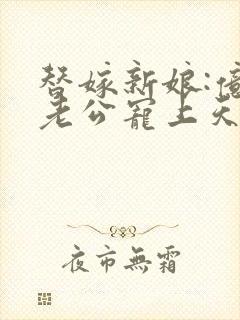 替嫁新娘:億
老公寵上天
夜市無霜